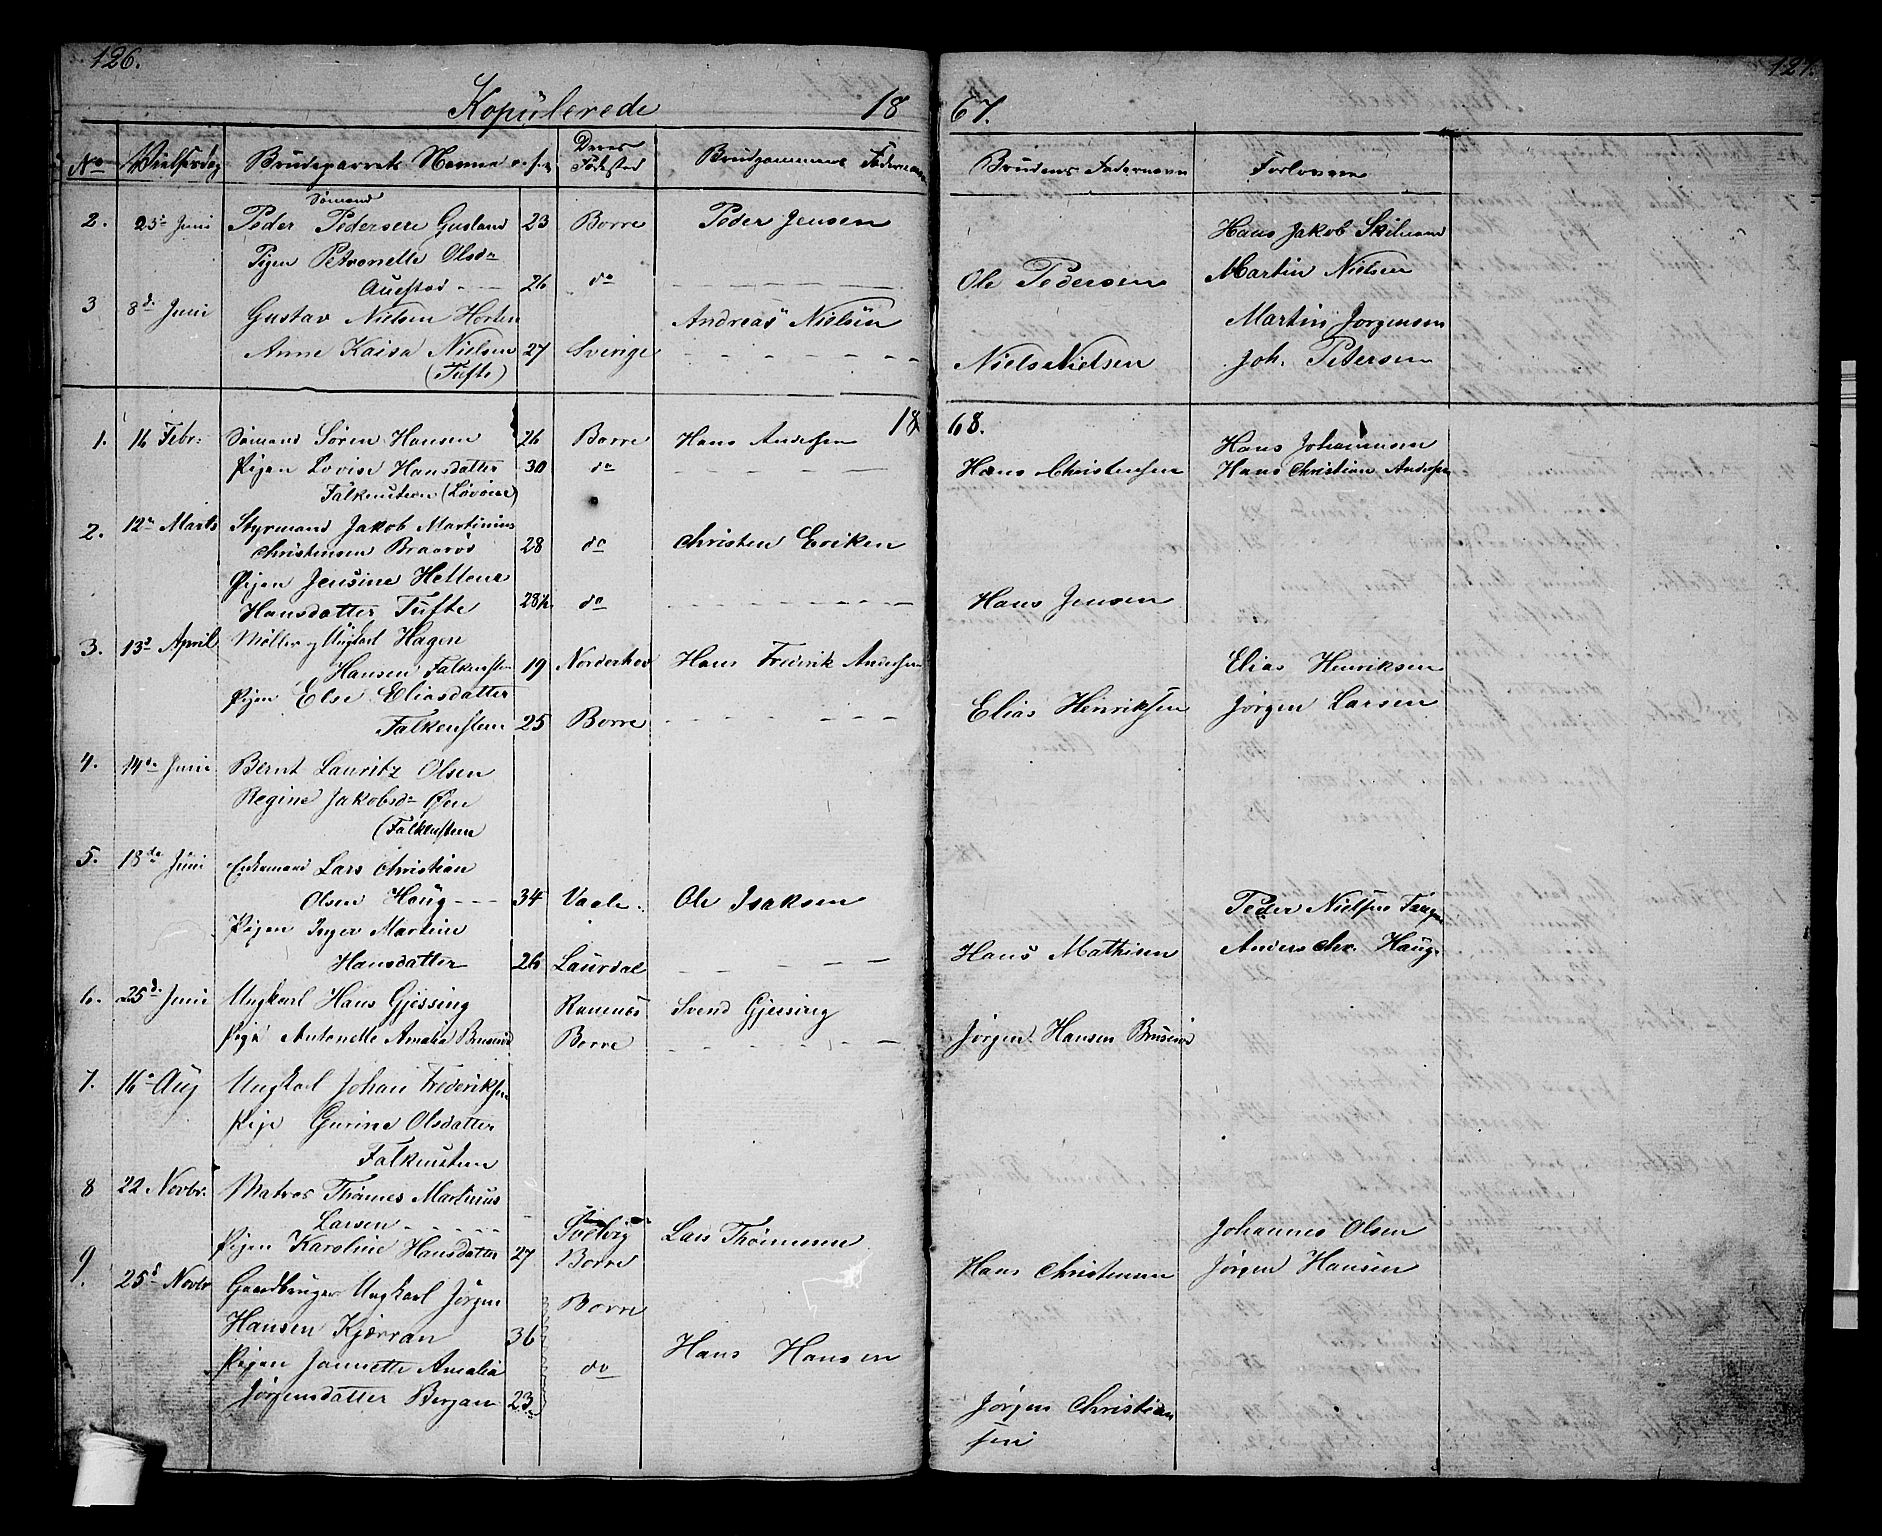 126.
127.
Kopulerede 1867.
No Vielsesdag Brudeparrets Navne Deres Fødested Brudgommens Fadernavn Brudens Fadernavn Forlovere
Sømand
2. 23de Juni Peder Pedersen 23 Borre Peder Jensen Hans Jakob
Pigen Petronelle Olsdr
26 do Ole Pedersen Martin Nielsen
3 8de Juni Gustav Nielsen Horten Andreas Nielsen Martin Jørgensen
Anne Kaisa Nielsen 27 Sverige Niels Nielsen Joh. Petersen
(Tufte)
1868.
1. 16 Febr: Sømand Søren Hansen 26 Borre Hans Andersen Hans Johannesen
Pigen Lovise Hansdatter 30 do Hans Christensen Hans Christian Andersen
Falkensteen
2. 12te Marts Styrmand Jakob Martinius
Christensen 28 do Christen Eriksen
Pigen Jensine Helene
Hansdatter Tufte 28½ do Hans Jensen
3. 13de April Møller og Ungkarl Hagen
Hansen Falkensten 19 Norderhov Hans Frederik Andersen Elias Henriksen
Pigen Else Eliasdatter
Falkensteen 25 Borre Elias Henriksen Jørgen Larsen
4. 14de Juni Bernt Lauritz Olsen
Regine Jakobsdr Øen
(Falkensteen
5. 18de Juni Enkemand Lars Christian
Olsen Haug 34 Vaale Ole Isaksen Peder Nielsen
Pigen Inger Martine
Hansdatter 26 Laurdal Hans Mathisen Anders Chr. Haug
6. 25de Juni Ungkarl Hans Gjessing Ramnæs Svend Gjessing
Pige Antonette Amalia Borre Jørgen Hansen
7. 16de Aug Ungkarl Johan Frederiksen
Pige Gurine Olsdatter
Falkensteen
8 22 Novbr. Matros Thomes Martinus
Larsen Svelvig Lars Thomesen Johannes Olsen
Pigen Karoline Hansdatter 27 Borre Hans Christensen Jørgen Hansen
9. 25de Novbr Gaardbruger Ungkarl Jørgen
Hansen Kjærran 36 Borre Hans Hansen
Pigen Jannette Amalia do
Jørgensdatter Berjan 23 Jørgen Christian
sen